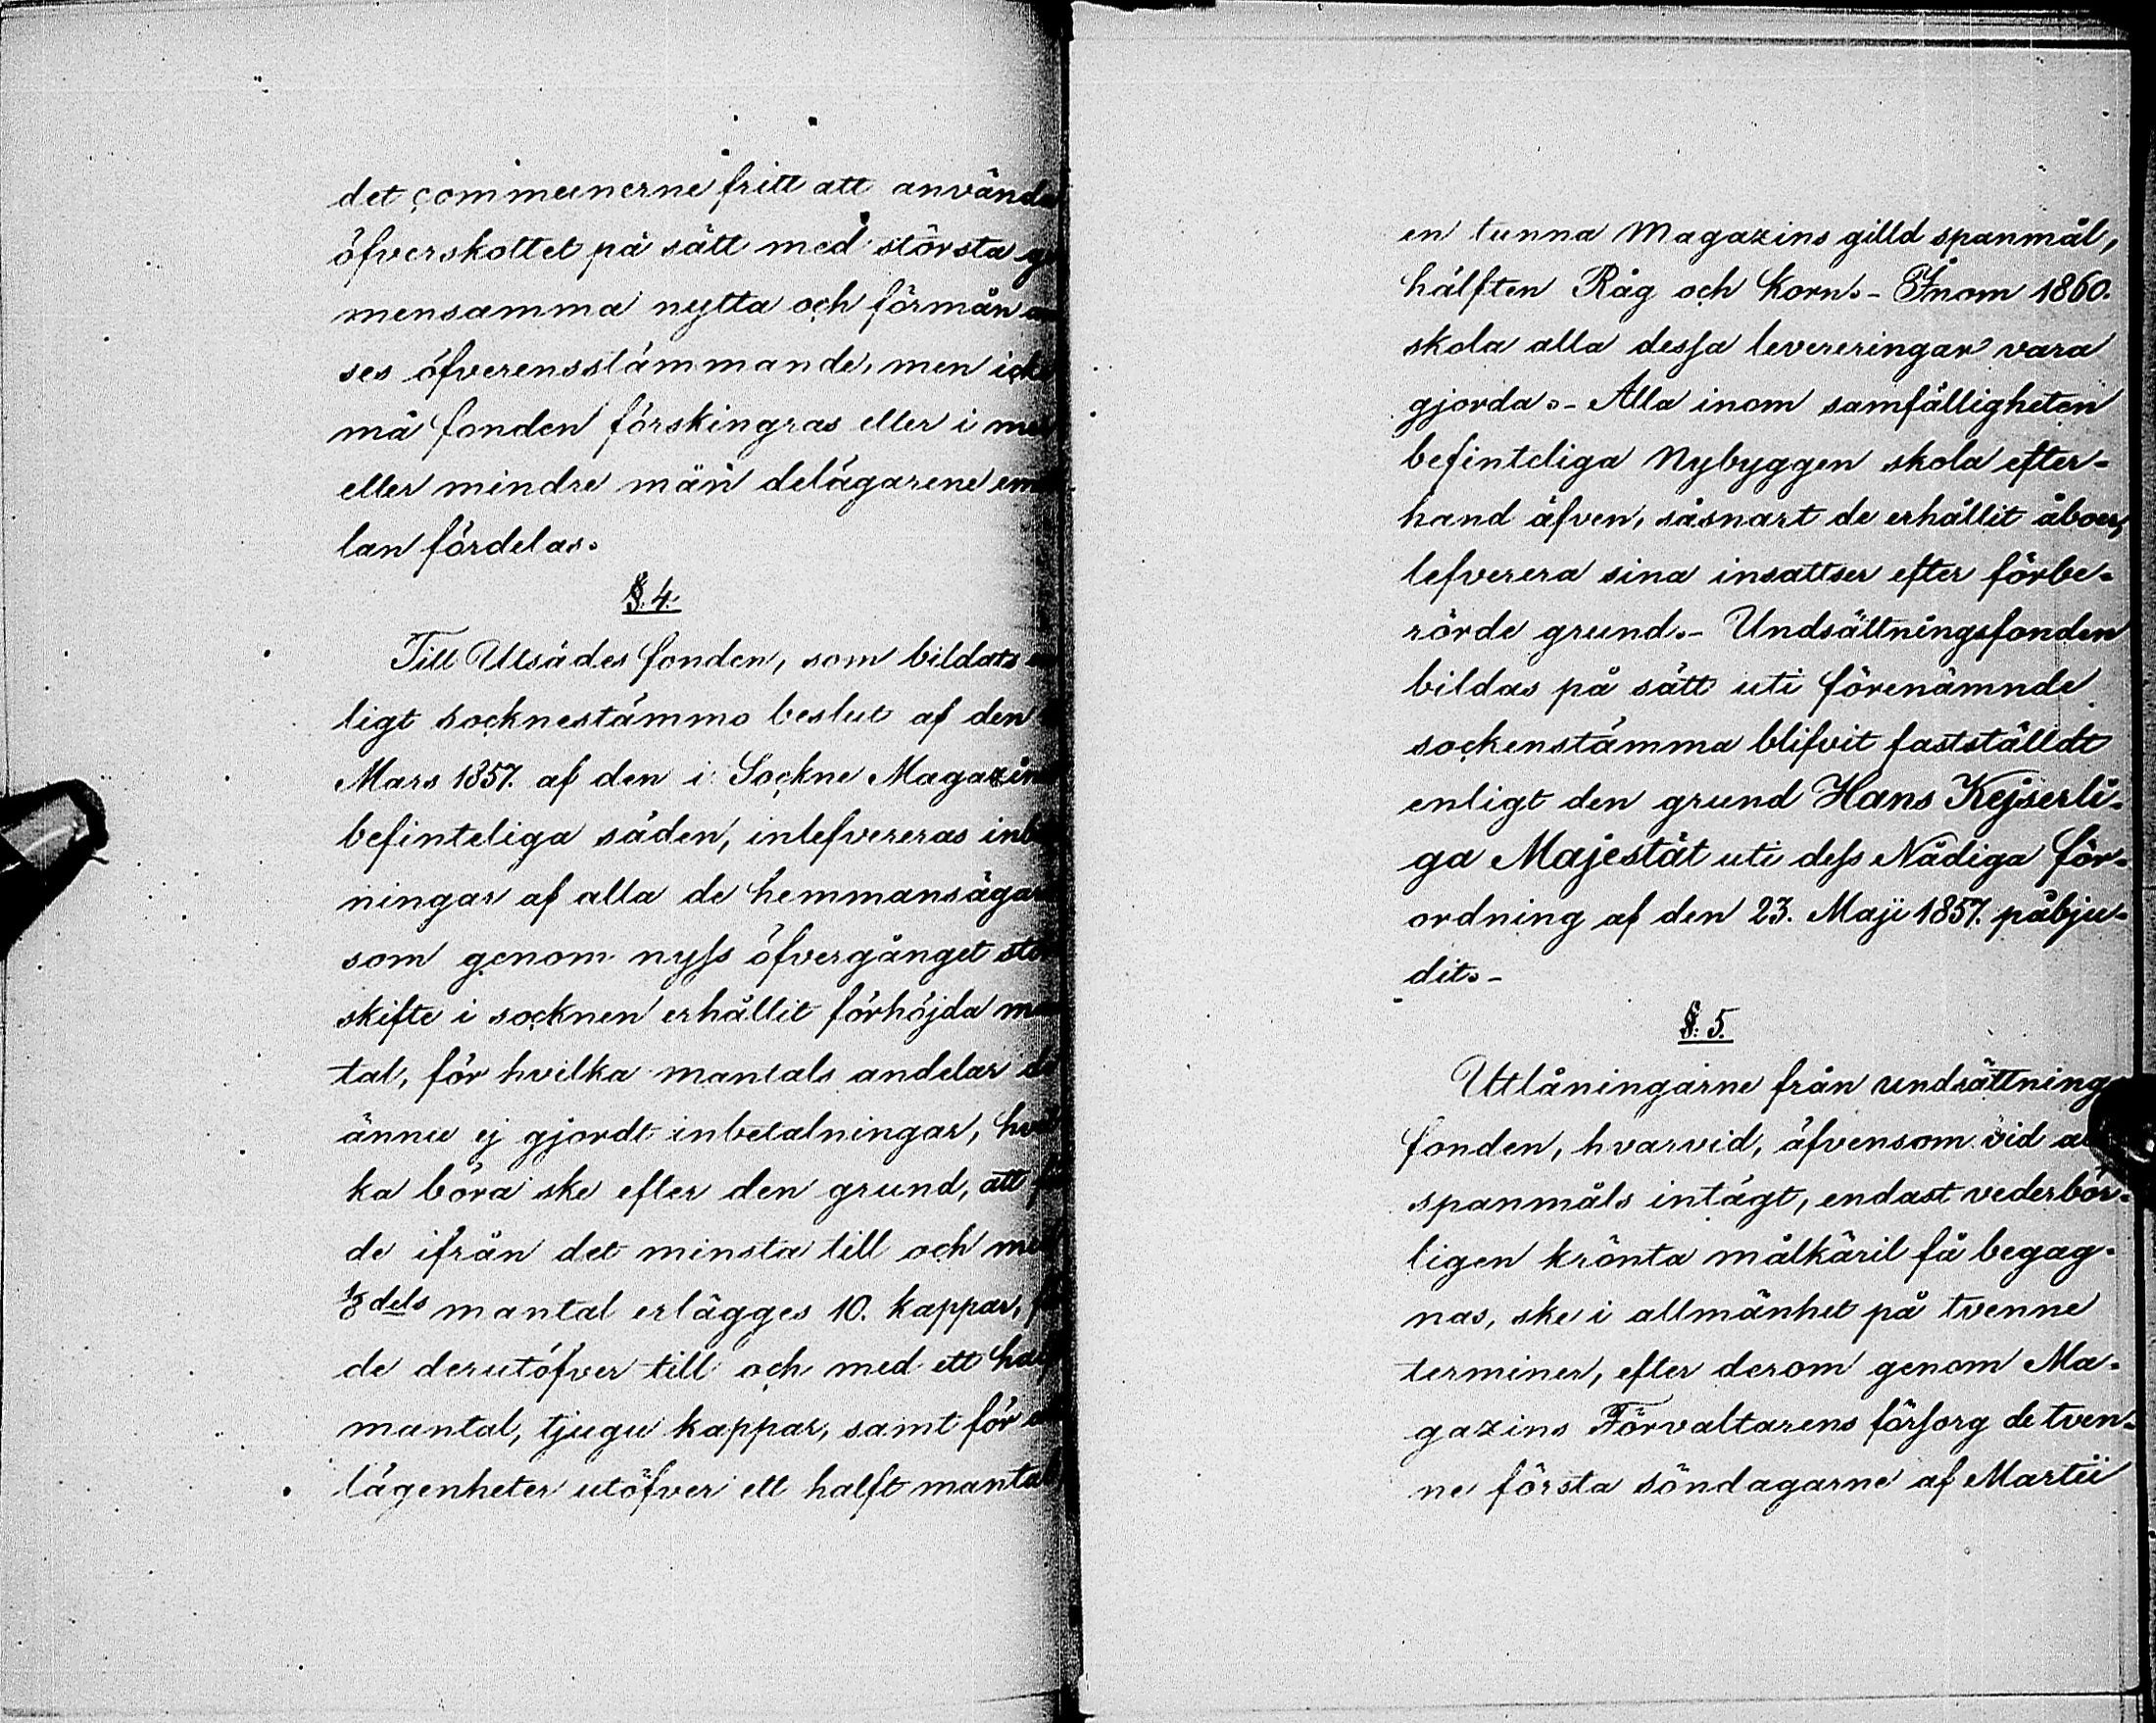 det communerne fritt att använda
öfverskottet på sätt med största ge
mensamma nytta och förmån
ses öfverensstämmande, men icke
må fonden förskingras eller i mer
eller mindre mån delägarene emel
lan fördelas.
§. 4.
Till Utsädes fonden, som bildats en
ligt socknestämmo beslut af den
Mars 1857. af den i Sockne Magazin
befinteliga säden, inlefvereras
ningar af alla de hemmansägare
som genom nyss öfvergånget stor
skifte i socknen erhållit förhöjda man
tal, för hvilka mantals andelar de
ännu ej gjordt inbetalningar, hvil
ka böra ske efter den grund, att för
de ifrån det minsta till och med
1/8 dels mantal erlägges 10. kappar, för
de derutöfver till och med ett half
mantal, tjugu kappar, samt för
lägenheter utöfver ett halft mantal
en tunna Magazins gilld spanmål,
hälften Råg och Korn. - Inom 1860.
skola alla dessa levereringar vara
gjorda. - Alla inom samfälligheten
befinteliga Nybyggen skola efter-
hand äfven, såsnart de erhållit åboer,
lefverera sina insattser efter förbe-
rörde grund. - Undsättningsfonden
bildas på sätt uti förenämnde
sockenstämma blifvit fastställdt
enligt den grund Hans Kejserli-
ga Majestät uti dess Nådiga för-
ordning af den 23. Maji 1857. påbju-
dit. -
§. 5.
Utlåningarne från undsättnings
fonden, hvarvid, äfvensom vid
spanmåls intägt, endast vederbör-
ligen krönta målkäril få begag-
nas, ske i allmänhet på tvenne
terminer, efter derom genom Ma-
gazins Förvaltarens försorg de tven-
ne första söndagarne af Martii